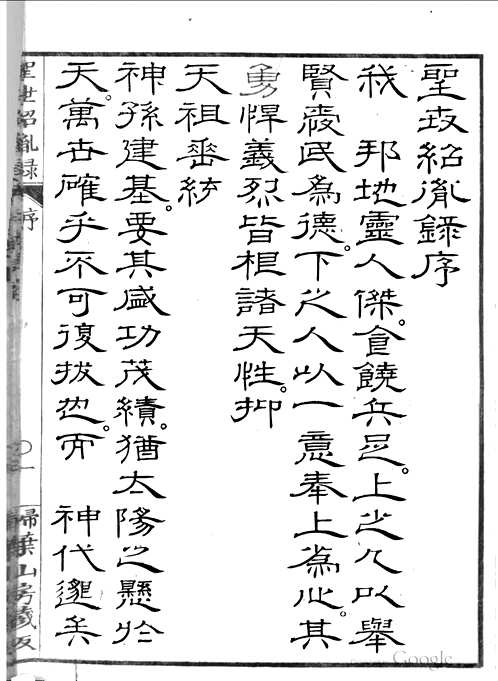 聖世紹胤錄序
我 邦地靈人傑。食饒兵足。上之人以舉
賢愛民為德。下之人以一意奉上為心。其
勇悍義烈皆根諸天性。抑
天祖垂統
神孫建基。要其盛功茂績。猶太陽之懸於
天。萬古確乎不可復拔也。而 神代邈矣
聖世紹胤録
序
掃葉山房藏
Google